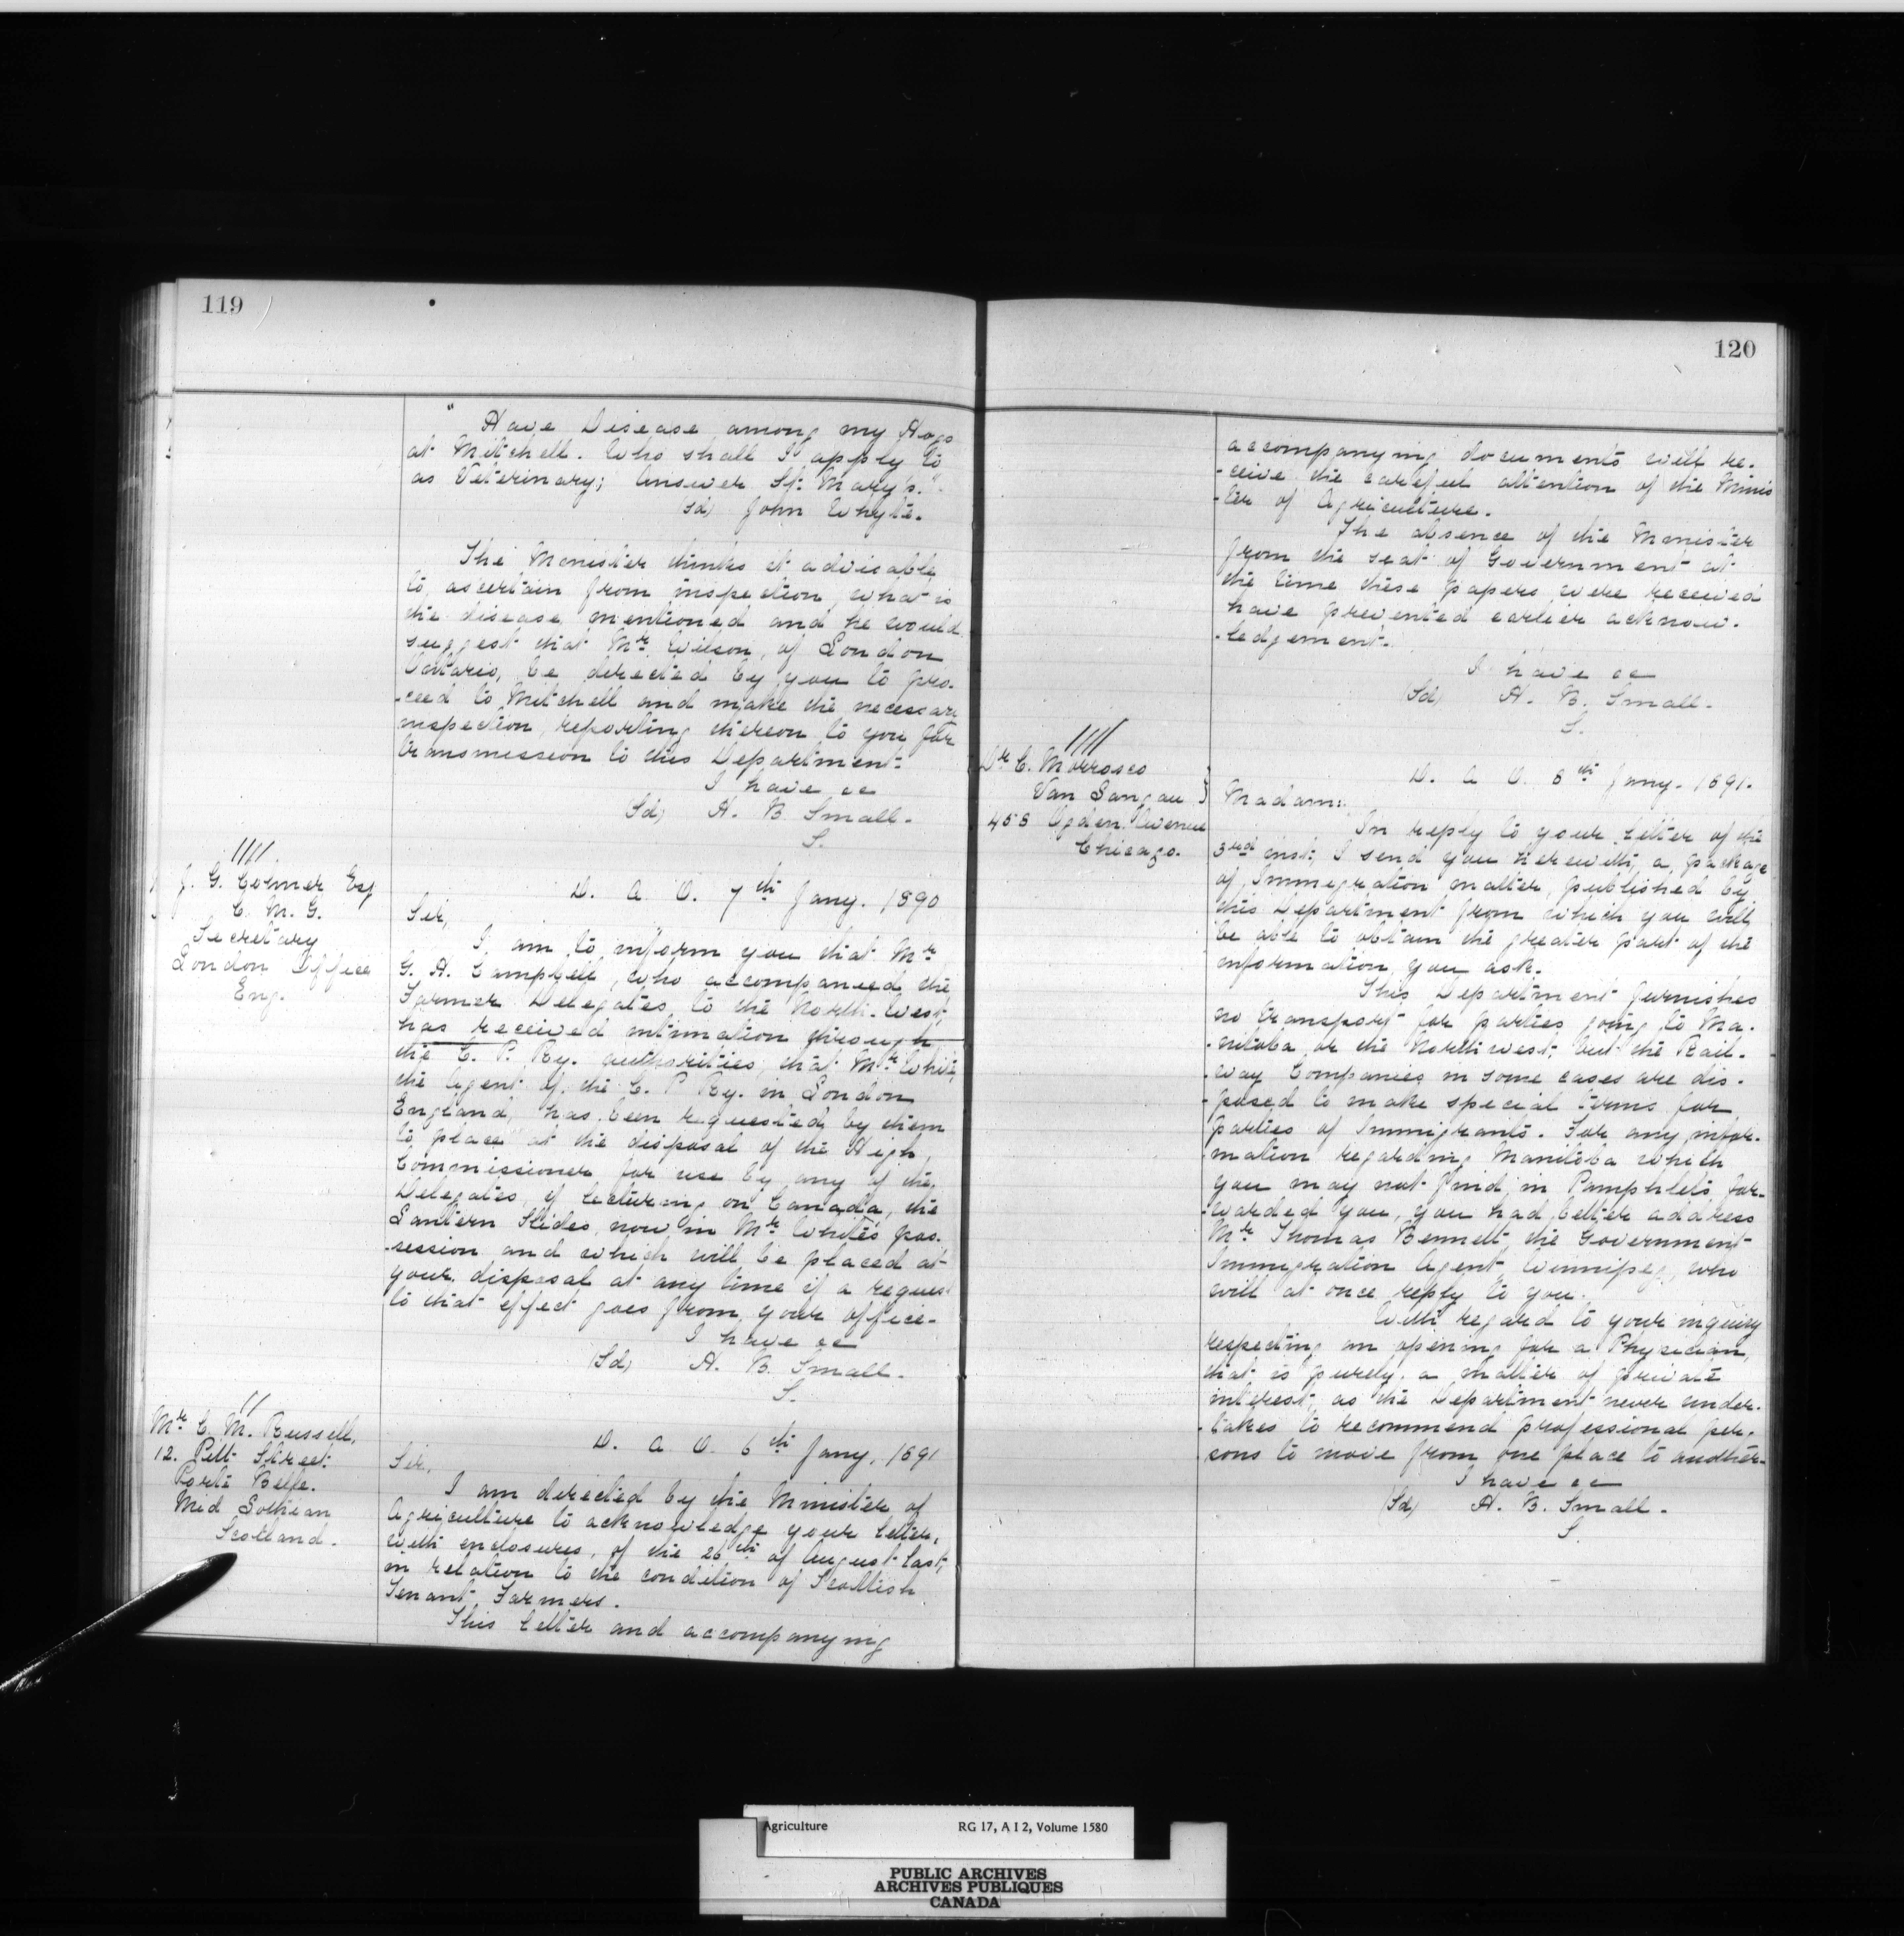 119
" Have Disease among my Hogs
at Mitchell. Who shall I apply to
as Veterinary; Answer St. Mary's."
Sd) John Whyte.
The Minister thinks it advisable
to ascertain from inspection, what is
the disease, mentioned and he would
suggest that Mr. Wilson, of London
Ontario, be directed by you to pro-
-ceed to Mitchell and make the necessary
inspection, reporting thereon to you for
transmission to this Department.
I have &c
(Sd) H. B. Small.
S.
J. G. Colmer Esq
C. M. G.
Secretary
London Office
Eng.
D. A. O. 7th Jany. 1890
Sir,
I am to inform you that Mr
G. H. Campbell, who accompanied the
Farmer Delegates to the North-West,
has received intimation through
the C. P. Ry. authorities, that Mr White,
the Agent of the C. P Ry. in London
England, has been requested by them
to place at the disposal of the High
Commissioner for use by any of the
Delegates, if lecturing on Canada, the
Lantern Slides, now in Mr. White's pos-
-session and which will be placed at
your disposal at any time if a request
to that effect goes from your office.
I have &c
(Sd) H. B. Small.
S.
Mr C. M. Russell,
12. Pitt Street
Porto Bello.
Mid Lothian
Scotland.
D. A. O. 6th Jany, 1891
Sir,
I am directed by the Minister of
Agriculture to acknowledge your letter,
with enclosures, of the 26th of August last,
in relation to the condition of Scottish
Tenant Farmers.
This letter and accompanying
120
accompanying documents will re-
-ceive the careful attention of the Minis
-ter of Agriculture.
The absence of the Minister
from the seat of Government at
the time these papers were received
have prevented earlier acknow-
-ledgement.
I have &c
(Sd) H. B. Small.
S.
Dr C. Morrosco
Van Sangau
455 Ogden Avenue
Chicago.
D. A. O. 8th Jany. 1891.
Madam:
In reply to your letter of the
3rd inst, I send you herewith, a package
of Immigration matter, published by
this Department from which you will
be able to obtain the greater part of the
information you ask.
This Department furnishes
no transport for parties going to Ma-
-nitoba or the North west, but the Rail-
-way Companies in some cases are dis-
-posed to make special terms for
parties of Immigrants. For any infor-
-mation regarding Manitoba which
you may not find in Pamphlets for-
-warded you, you had better address
Mr Thomas Bennett the Government
Immigration Agent, Winnipeg, who
will at once reply to you.
With regard to your inquiry
respecting an opening for a Physician,
that is purely a matter of private
interest, as the Department never under-
-takes to recommend professional per-
-sons to move from one place to another.
I have &c
(Sd) H. B. Small.
S.
Agriculture RG 17, A I 2, Volume 1580
PUBLIC ARCHIVES
ARCHIVES PUBLIQUES
CANADA